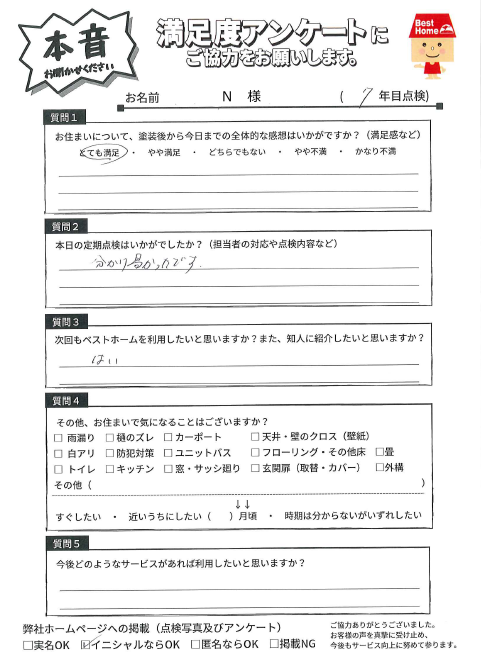 本音
お聞かせください
満足度アンケートに
ご協力をお願いします。
Best Home
お名前 N 様 ( 7 年目点検)
質問1
お住まいについて、塗装後から今日までの全体的な感想はいかがですか？（満足感など）
とても満足 ・ やや満足 ・ どちらでもない ・ やや不満 ・ かなり不満
質問2
本日の定期点検はいかがでしたか？（担当者の対応や点検内容など）
分かり易かったです.
質問3
次回もベストホームを利用したいと思いますか？また、知人に紹介したいと思いますか？
はい
質問4
その他、お住まいで気になることはございますか？
□ 雨漏り □ 樋のズレ □ カーポート □ 天井・壁のクロス（壁紙）
□ 白アリ □ 防犯対策 □ ユニットバス □ フローリング・その他床 □畳
□ トイレ □ キッチン □ 窓・サッシ廻り □ 玄関扉（取替・カバー） □外構
その他（ ）
↓↓
すぐしたい ・ 近いうちにしたい（ ）月頃 ・ 時期は分からないがいずれしたい
質問5
今後どのようなサービスがあれば利用したいと思いますか？
弊社ホームページへの掲載（点検写真及びアンケート）
□実名OK ☑イニシャルならOK □匿名ならOK □掲載NG
ご協力ありがとうございました。
お客様の声を真摯に受け止め、
今後もサービス向上に努めて参ります。